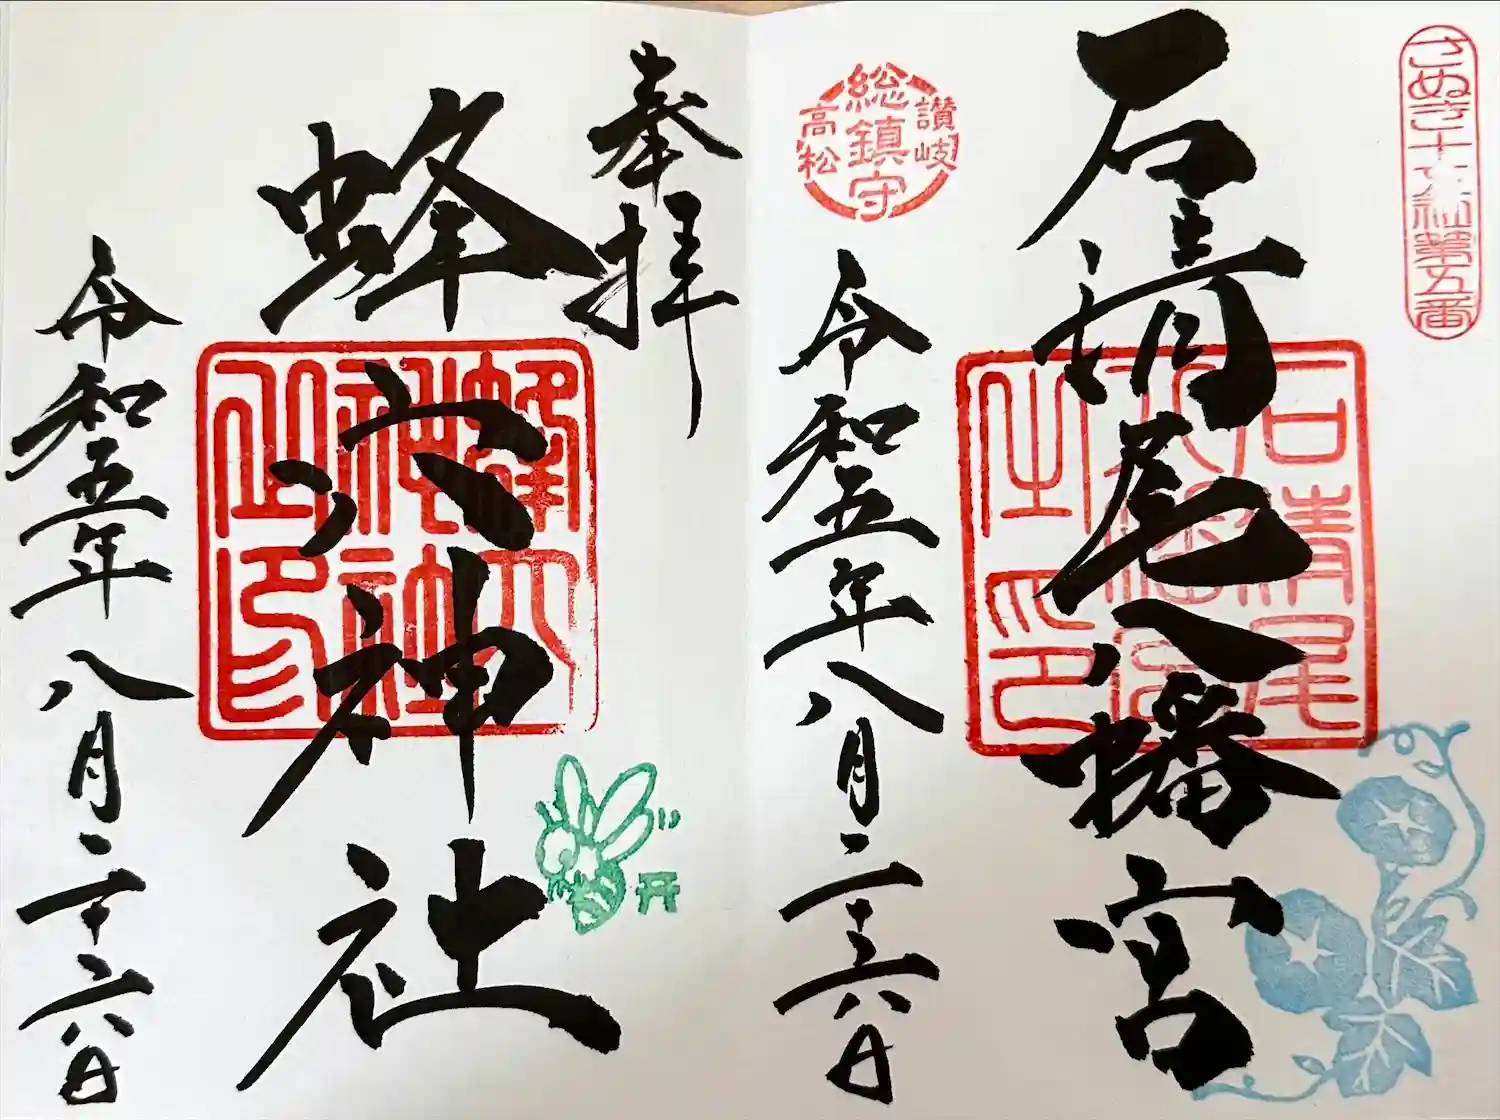 さぬき十五社第五番
石清尾八幡宮
石清尾
八幡宮
之印
讃岐
総鎮守
高松
令和五年八月二十六日
奉拝
蜂穴神社
蜂穴
神社
之印
令和五年八月二十六日